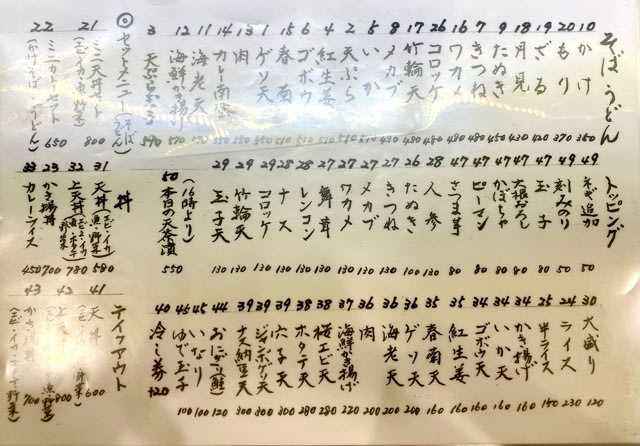 そば うどん
10 かけ 350
20 もり 370
19 ざる 420
18 月見 430
9 たぬき 450
7 きつね 480
16 ワカメ 480
26 コロッケ 480
17 竹輪天 480
8 メカブ 480
5 いか 510
2 天ぷら 510
4 紅生姜 510
6 ゴボウ 510
15 春菊 510
1 ゲソ天
13 肉
14 カレー南蛮
11 海老天
12 海鮮かき揚げ 570
3 天ぷらぶっかけ 590
◎ セットメニュー(そば うどん)
21 ミニ天丼セット (エビ・イカ・魚・野菜) 800
22 ミニカレーセット (かけそば・うどん) 650
トッピング
49 ネギ追加 50
49 刻みのり 50
47 玉子 80
47 大根おろし 80
47 かぼちゃ 80
47 ピーマン 80
47 さつま芋 80
28 人参 80
26 たぬき 100
27 きつね 130
27 メカブ 130
27 ワカメ 130
28 舞茸 130
28 レンコン 130
28 ナス 130
29 コロッケ 130
29 竹輪天 130
29 玉子天 130
(16時より)
50 本日の天ぷら 550
丼
31 天丼 (エビ・イカ 魚・野菜) 580
32 上天丼 780
23 かき揚丼 700
33 カレーライス 450
30 大盛り 120
24 ライス 230
25 半ライス 150
34 かき揚げ 160
34 いか天 160
34 ゴボウ天 160
35 紅生姜 160
35 春菊天 160
36 ゲソ天 200
36 海老天 200
36 肉 200
37 海鮮かき揚げ 220
38 桜エビ天 280
38 ホタテ天 280
39 穴子天 300
39 ジャンボゲソ天 300
39 ナス納豆天 300
44 おにぎり(鮭) 120
45 いなり 100
46 ゆで玉子 100
40 冷し券 +20
テイクアウト
41 天丼 600
42 上天丼 800
43 かき揚丼 700